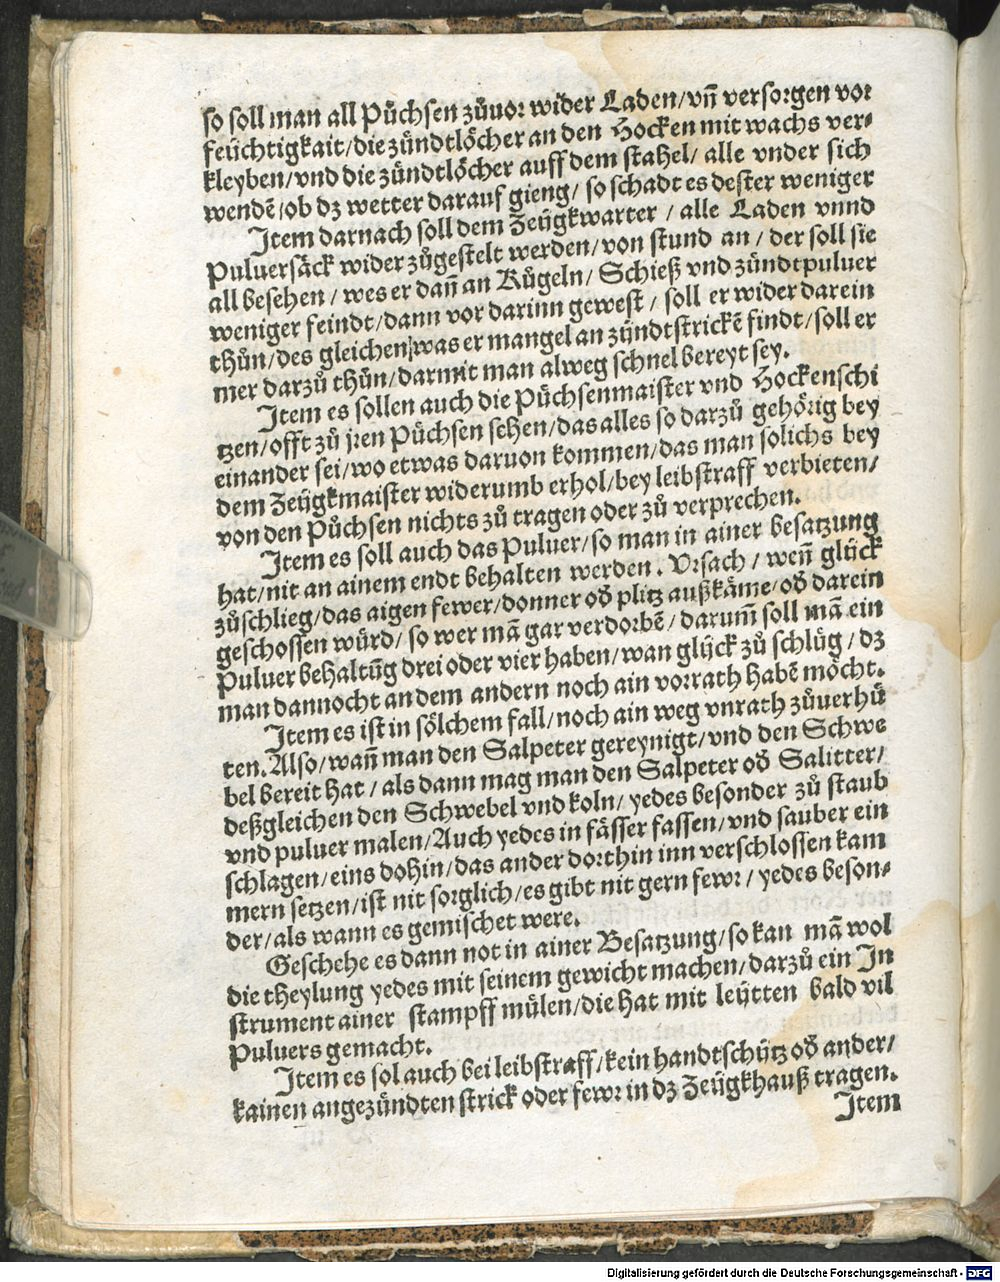 so soll man all Püchsen zůuor wider Laden/vñ versorgen vor
feüchtigkait/die zündtlöcher an den Hocken mit wachs ver⸗
kleyben/vnd die zündtlöcher auff dem stahel/ alle vnder sich
wendē/ob dz wetter darauf gieng/ so schadt es dester weniger
Item darnach soll dem Zeügkwarter / alle Laden vnnd
Puluersäck wider zůgestelt werden/von stund an / der soll sie
all besehen / wes er dañ an Kůgeln/ Schieß vnd zündtpuluer
weniger feindt/dann vor darinn gewest / soll er wider darein
thůn/des gleichen/was er mangel an zündtstrickē findt/soll er
mer darzů thůn/darmit man alweg schnel bereyt sey.
Item es sollen auch die Püchsenmaister vnd Hockenschi
tzen/offt zů jren Püchsen sehen/das alles so darzů gehörig bey
einander sei/wo etwas daruon kommen/das man solichs bey
dem Zeügkmaister widerumb erhol/bey leibstraff verbieten/
von den Püchsen nichts zů tragen oder zů verprechen.
Item es soll auch das Puluer/so man in ainer besatzung
hat/nit an ainem endt behalten werden. Vrsach / weñ glück
zůschlieg/das aigen fewer/donner oð plitz außkäme/oð darein
geschossen würd/ so wer mā gar verdorbē/ darum̄ soll mā ein
Puluer behaltūg drei oder vier haben/wan glück zů schlüg/ dz
man dannocht an dem andern noch ain vorrath habē möcht.
Item es ist in sölchem fall/noch ain weg vnrath zůuerhü
ten. Also/wañ man den Salpeter gereynigt/vnd den Schwe
bel bereit hat / als dann mag man den Salpeter oð Salitter/
deßgleichen den Schwebel vnd koln/ yedes besonder zů staub
vnd puluer malen/Auch yedes in fässer fassen/vnd sauber ein
schlagen/eins dohin/das ander dorthin inn verschlossen kam
mern setzen/ist nit sorglich/es gibt nit gern fewr/ yedes beson⸗
der/als wann es gemischet were.
Geschehe es dann not in ainer Besatzung/so kan mā wol
die theylung yedes mit seinem gewicht machen/darzů ein In
strument ainer stampff mülen/die hat mit leütten bald vil
Puluers gemacht.
Item es sol auch bei leibstraff/kein handtschütz oð ander/
kainen angezündten strick oder fewr in dz Zeügkhauß tragen.
Item
Digitalisierung gefördert durch die Deutsche Forschungsgemeinschaft - DFG